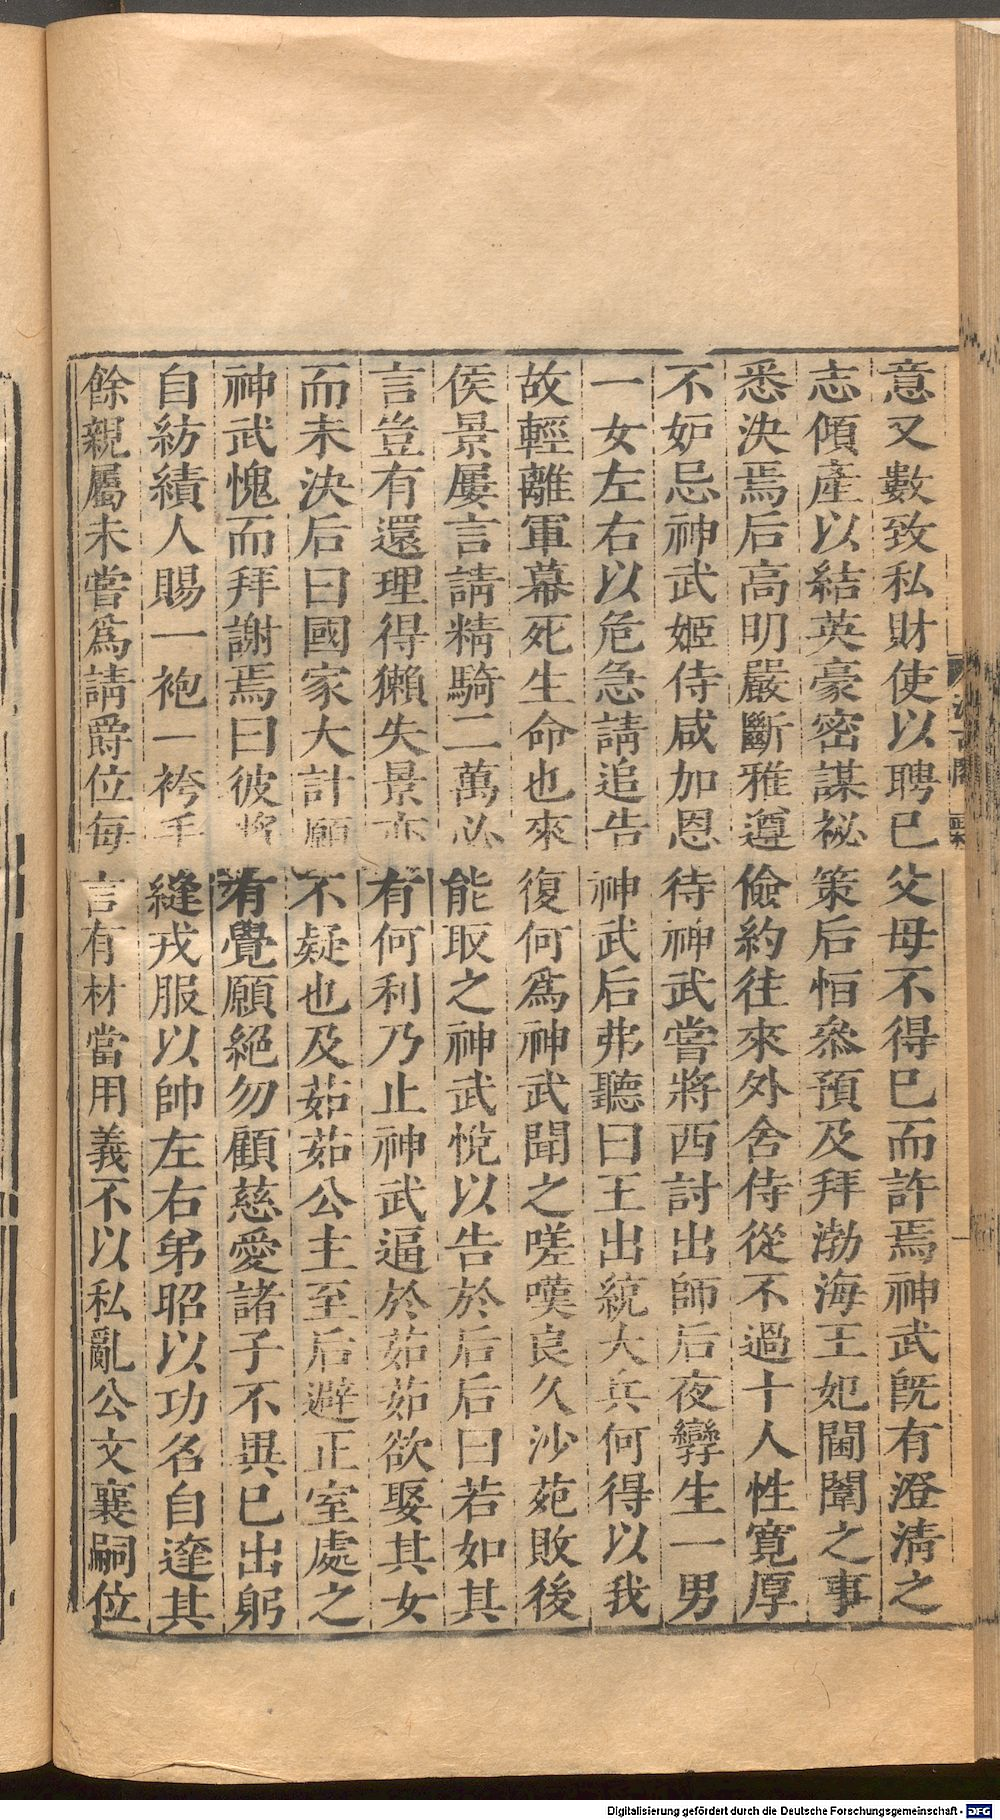 意又數致私財使以聘已父母不得已而許焉神武旣有澄淸之
志傾產以結英豪密謀祕策后恒叅預及拜渤海王妃閫闈之事
悉決焉后高明嚴斷雅遵儉約往來外舍侍從不過十人性寬厚
不妒忌神武姬侍咸加恩待神武嘗將西討出師后夜孿生一男
一女左右以危急請追告神武后弗聽曰王出統大兵何得以我
故輕離軍幕死生命也來復何爲神武聞之嗟嘆良久沙苑敗後
侯景屢言請精騎二萬必能取之神武悅以告於后后曰若如其
言豈有還理得獺失景亦有何利乃止神武逼於茹茹欲娶其女
而未決后曰國家大計願不疑也及茹茹公主至后避正室處之
神武愧而拜謝焉曰彼將有覺願絕勿顧慈愛諸子不異已出躬
自紡績人賜一袍一袴手縫戎服以帥左右弟昭以功名自達其
餘親屬未嘗爲請爵位每言有材當用義不以私亂公文襄嗣位
Digitalisierung gefördert durch die Deutsche Forschungsgemeinschaft - DFG